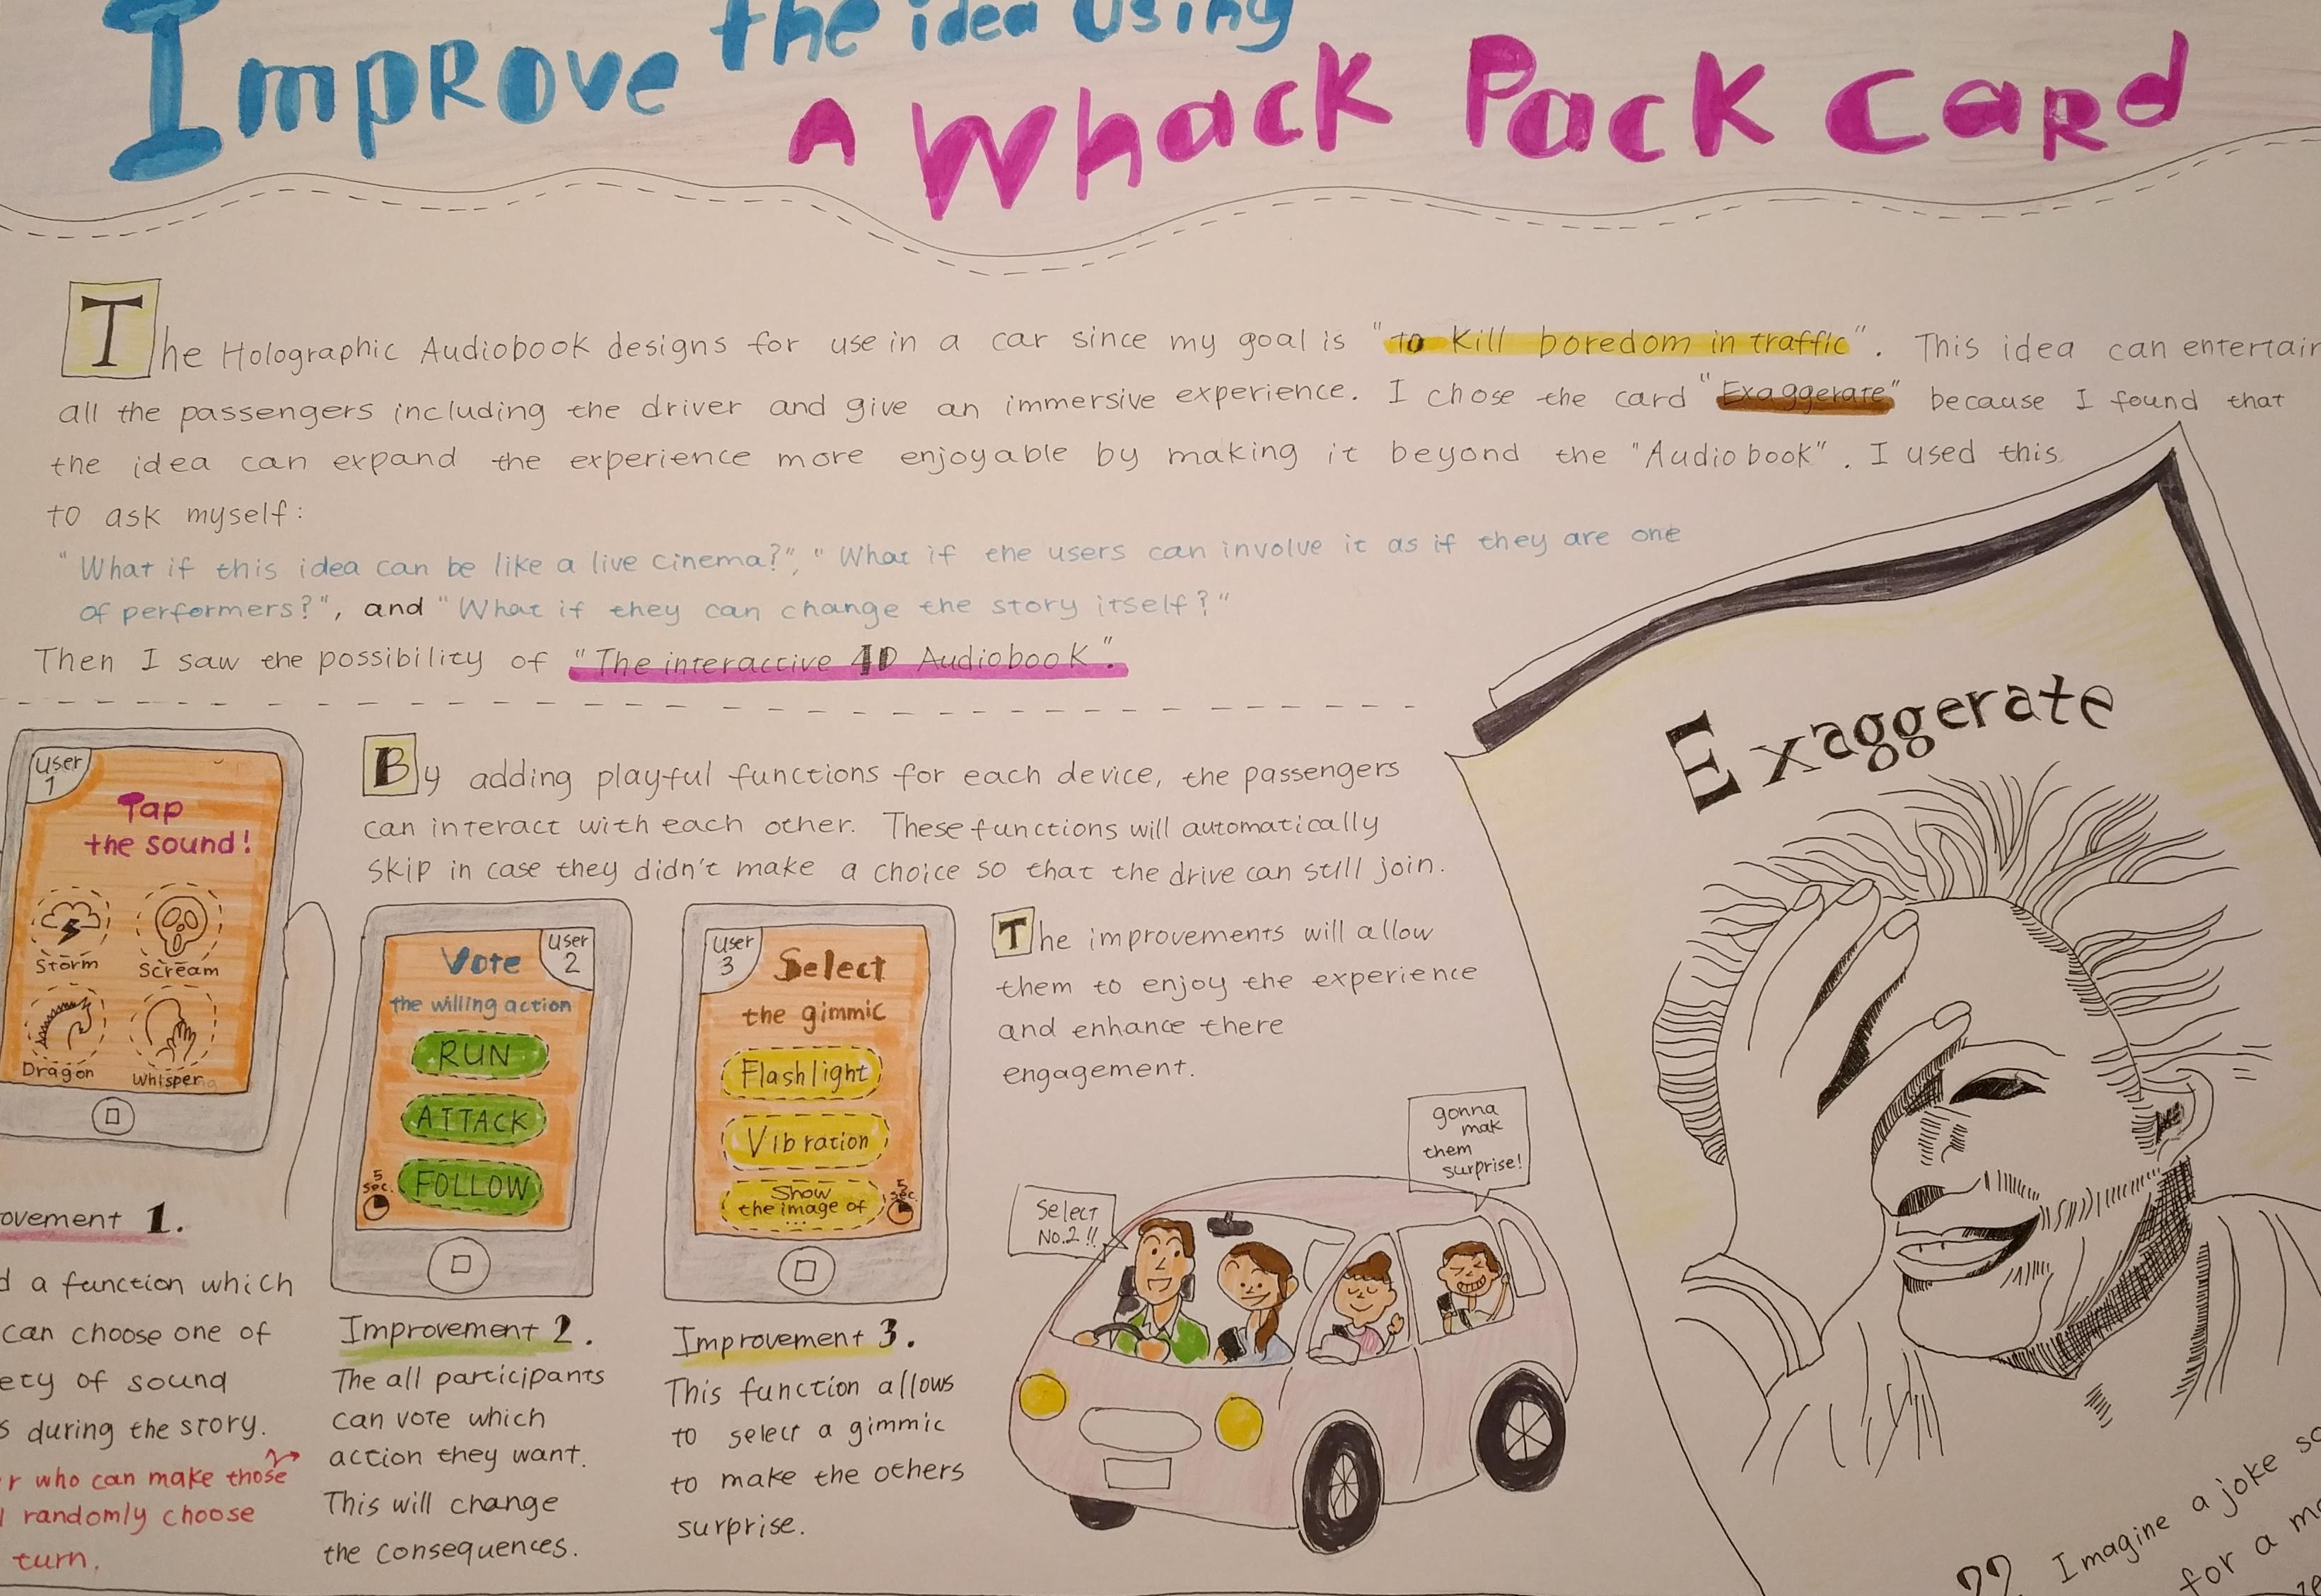 Improve the idea using
A Whack Pack Card
The Holographic Audiobook designs for use in a car since my goal is "to kill boredom in traffic". This idea can entertain
all the passengers including the driver and give an immersive experience. I chose the card "Exaggerate" because I found that
the idea can expand the experience more enjoyable by making it beyond the "Audiobook". I used this
to ask myself:
"What if this idea can be like a live cinema?", "What if the users can involve it as if they are one
of performers?", and "What if they can change the story itself?"
Then I saw the possibility of "The interactive 4D Audiobook".
User
1
Tap
the sound!
Storm
Scream
Dragon
Whispering
ovement 1.
d a function which
can choose one of
ety of sound
s during the story.
r who can make those
l randomly choose
turn.
By adding playful functions for each device, the passengers
can interact with each other. These functions will automatically
skip in case they didn't make a choice so that the drive can still join.
Vote
User
2
the willing action
RUN
ATTACK
FOLLOW
5
sec.
Improvement 2.
The all participants
can vote which
action they want.
This will change
the consequences.
User
3
Select
the gimmic
Flashlight
Vibration
Show
the image of
...
5
sec.
Improvement 3.
This function allows
to select a gimmic
to make the others
surprise.
The improvements will allow
them to enjoy the experience
and enhance there
engagement.
Select
No.2!!
gonna
mak
them
surprise!
Exaggerate
?? Imagine a joke so
for a m